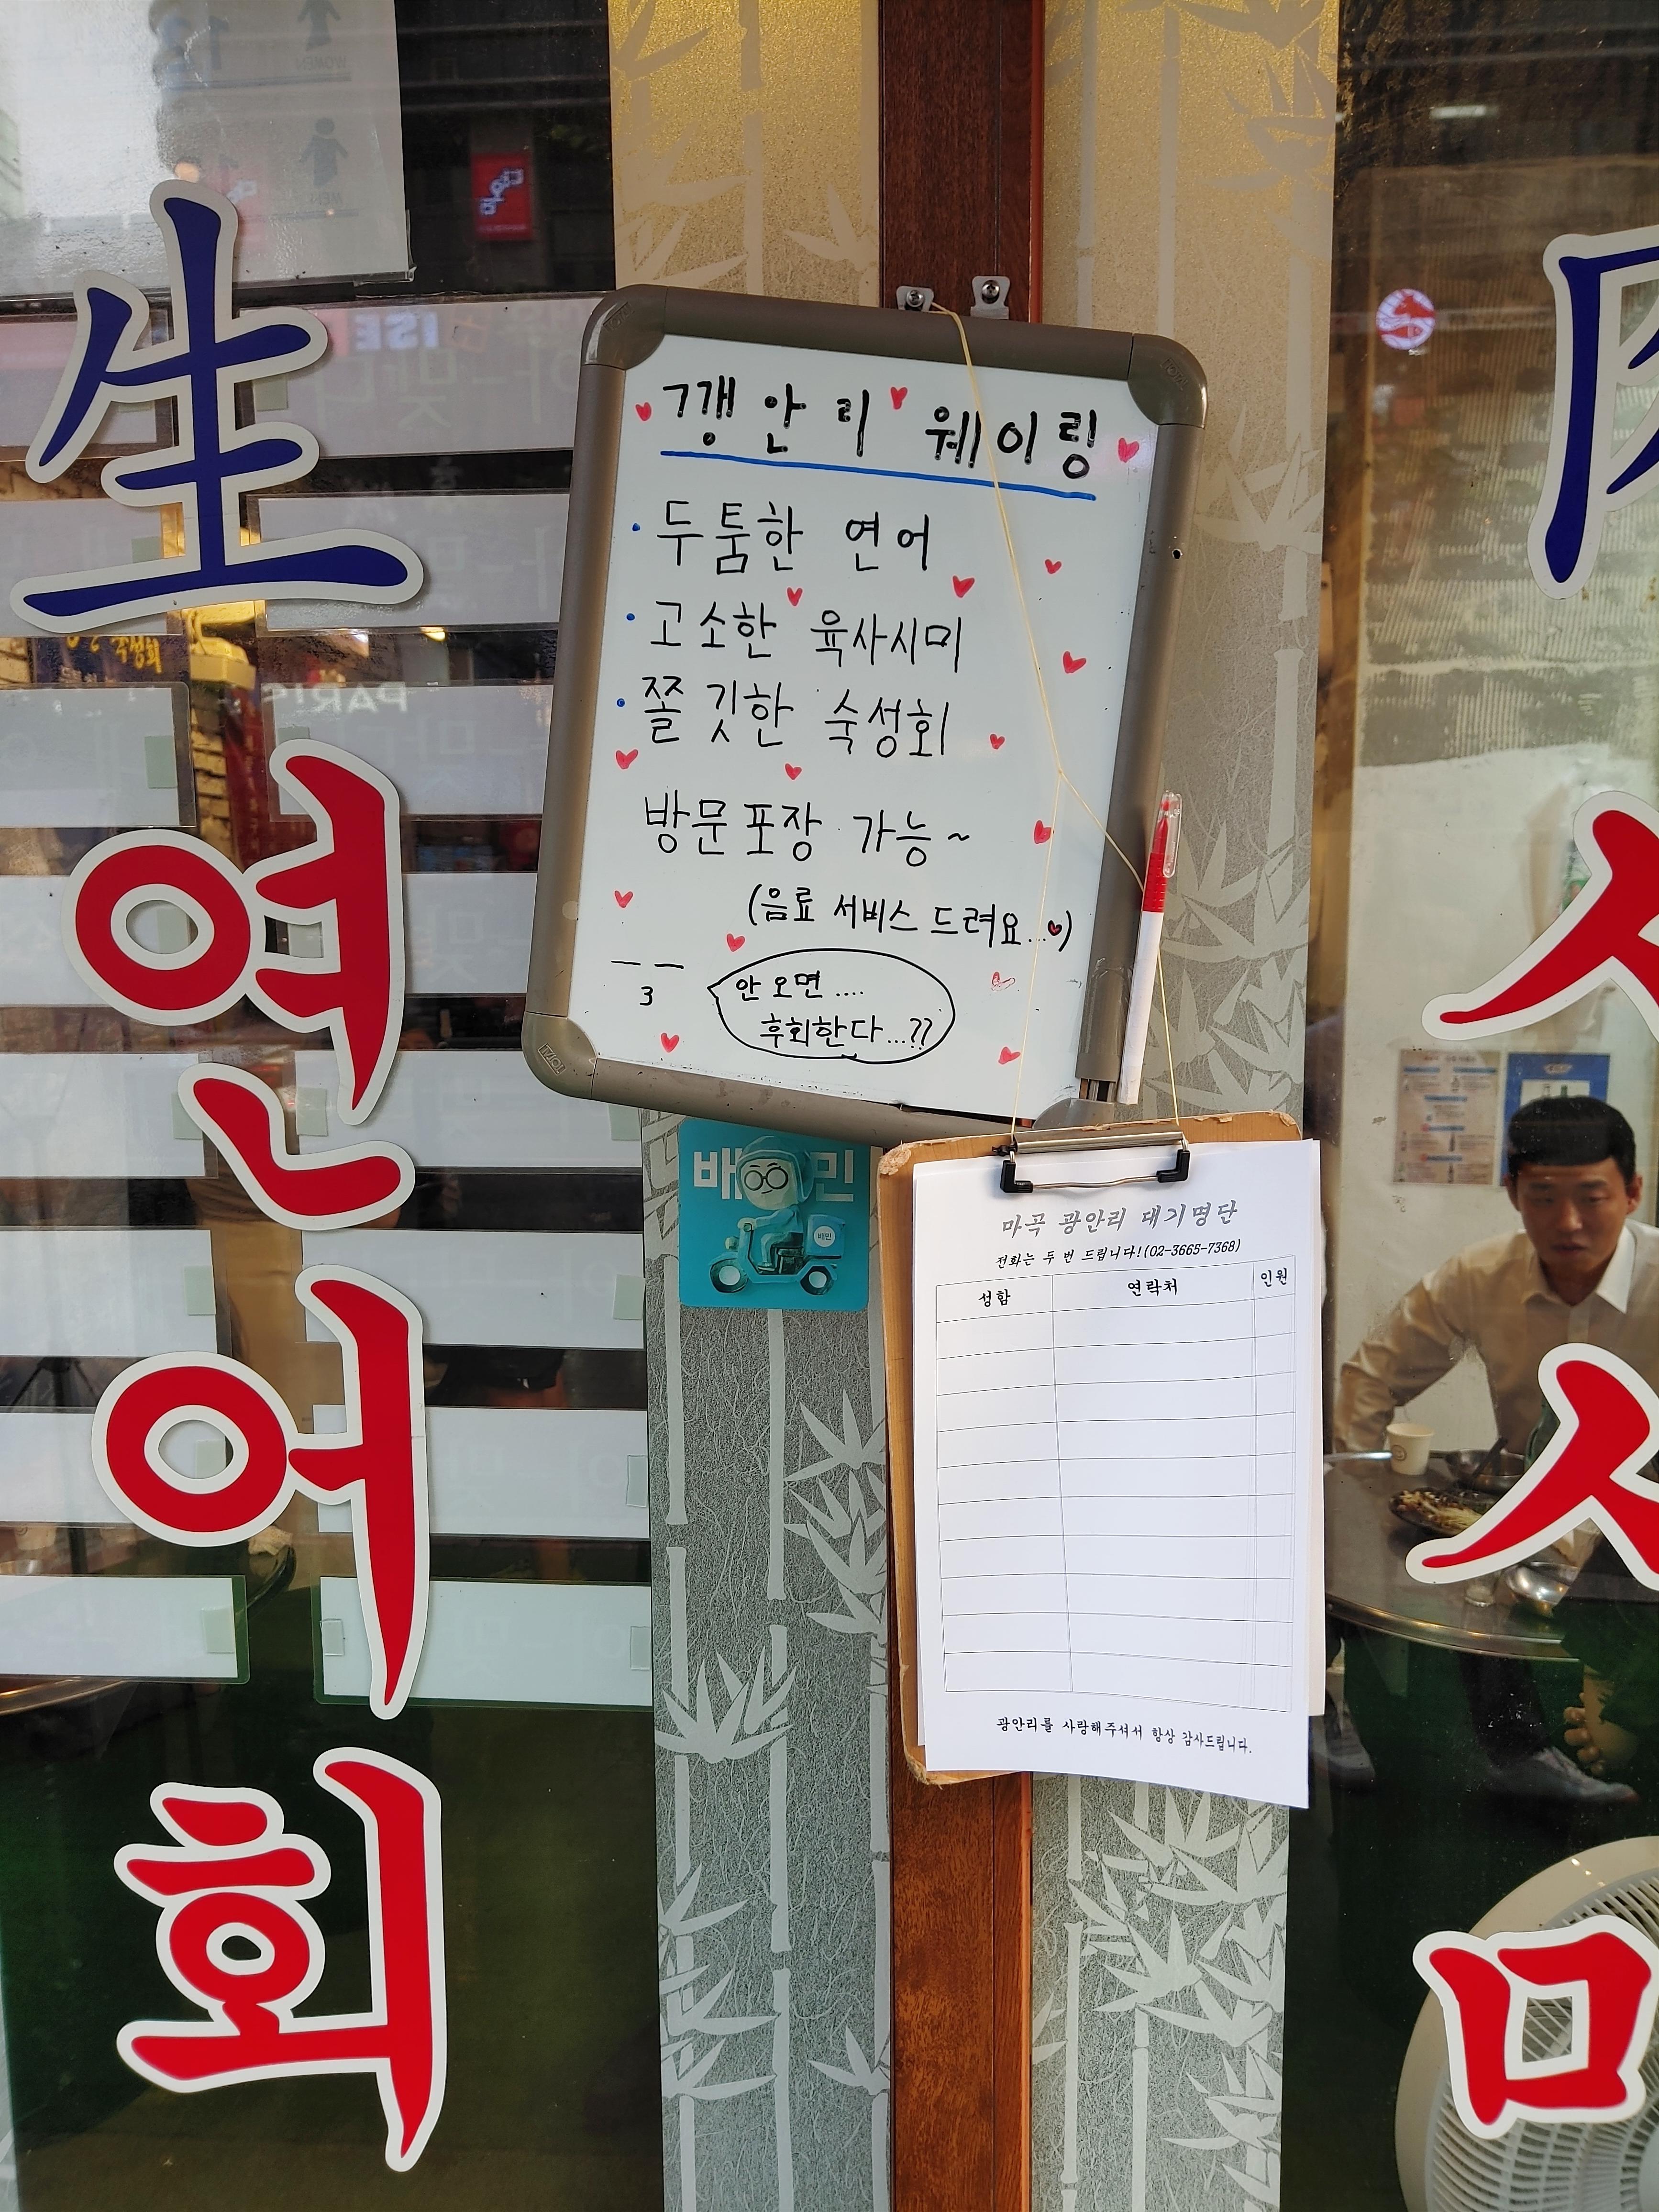 生
연
어
회
깽안리 웨이링
• 두툼한 연어
• 고소한 육사시미
• 쫄깃한 숙성회
방문포장 가능~
(음료 서비스 드려요...)
안 오면....
후회한다...??
배민
배민
마곡 광안리 대기명단
전화는 두 번 드립니다!(02-3665-7368)
성함 연락처 인원
광안리를 사랑해주셔서 항상 감사드립니다.
사
시
미
WOMEN
MEN
PARIS